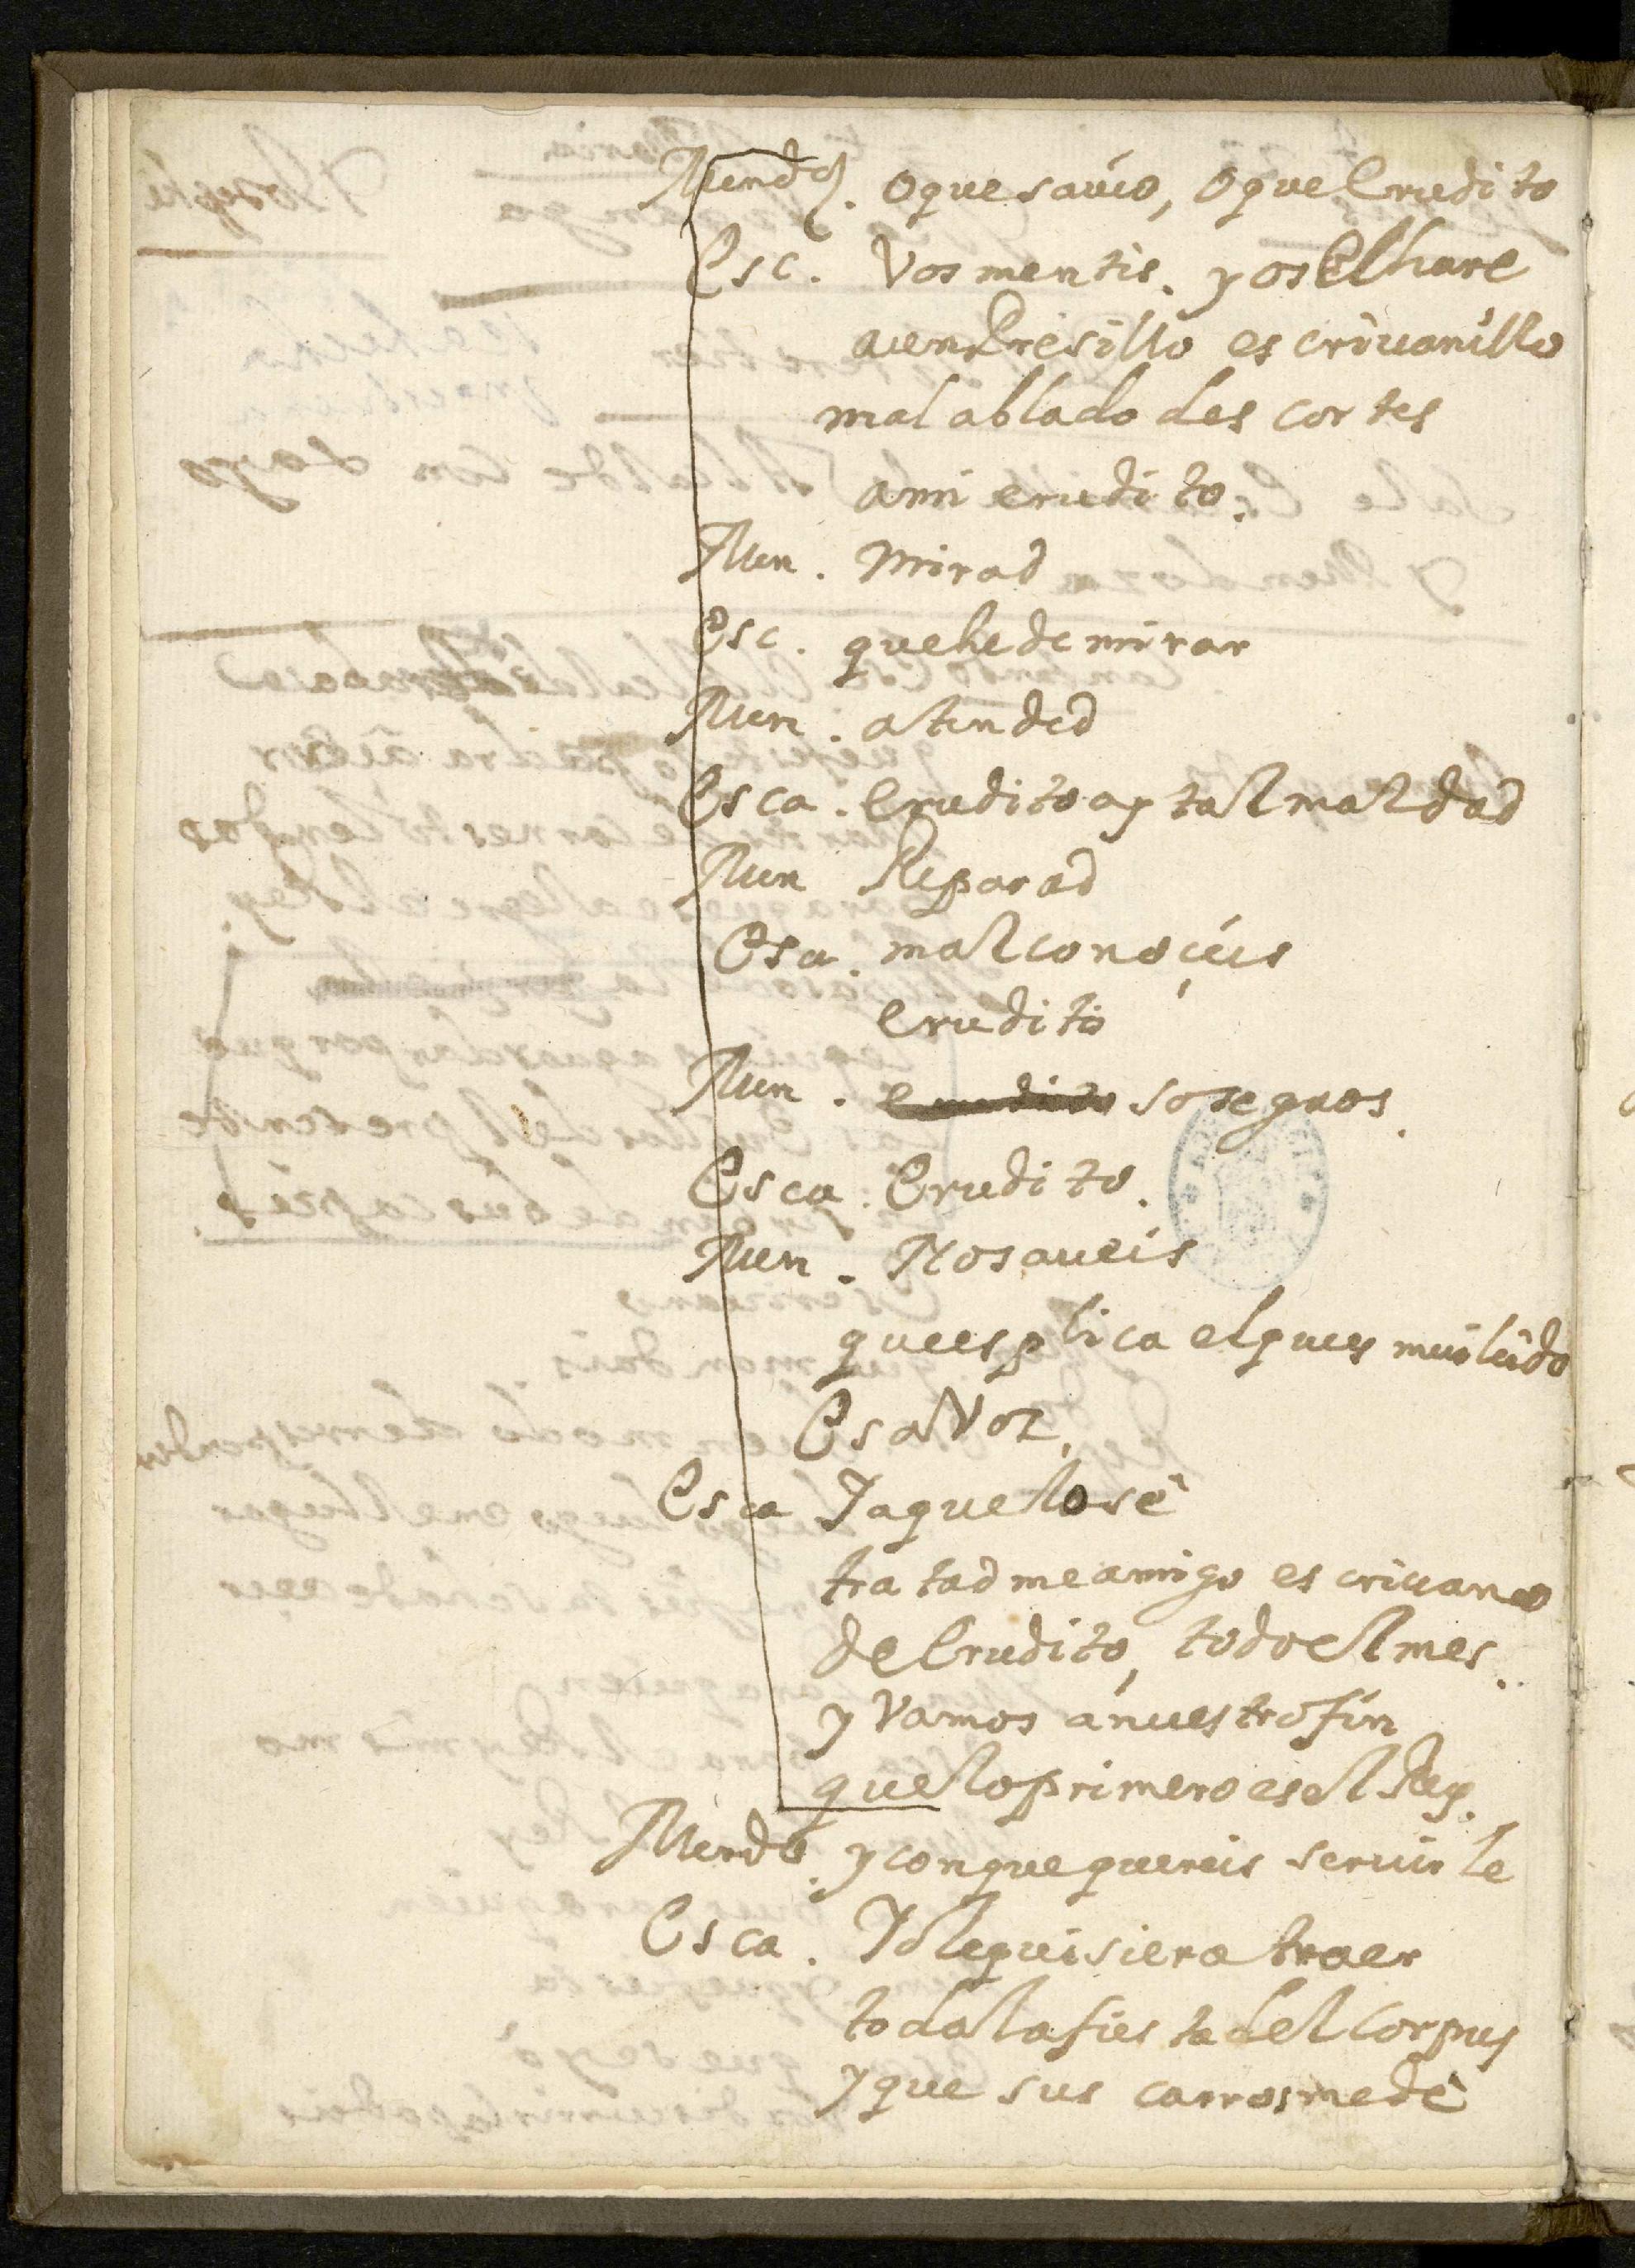 Mendoz. o que sauio, o que Erudito
Esc. Vos mentis. y os lo hare
auen Presillo escriuanillo
mal ablado descortes
a mi erudito.
Men. Mirad
Esc. que he de mirar
Men. atended
Esca. Erudito ay tal maldad
Men Reparad
Esca. mal conoceis
Erudito
Men. sosegaos.
Esca. Erudito.
Men. No saueis
que esplica el que es mui leido
Esa Voz,
Esca Ya que lo sé
tratadme amigo escriuano
de Erudito, todo el mes.
y Vamos á nuestro fin
que lo primero es el Rey.
Mendo. y con que quereis seruirle
Esca. Yo le quisiera traer
toda la fiesta del Corpus
y que sus carros me dé